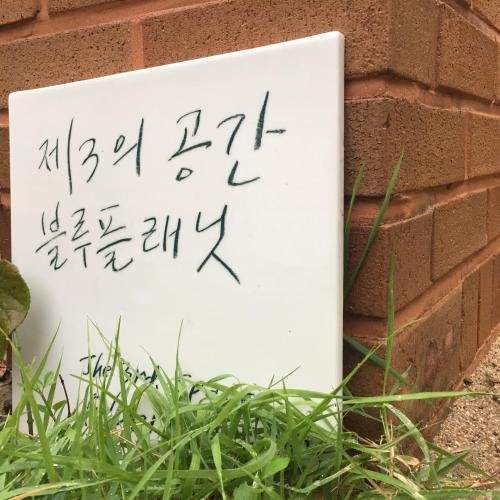 제3의 공간
블루플래닛
The 3rd